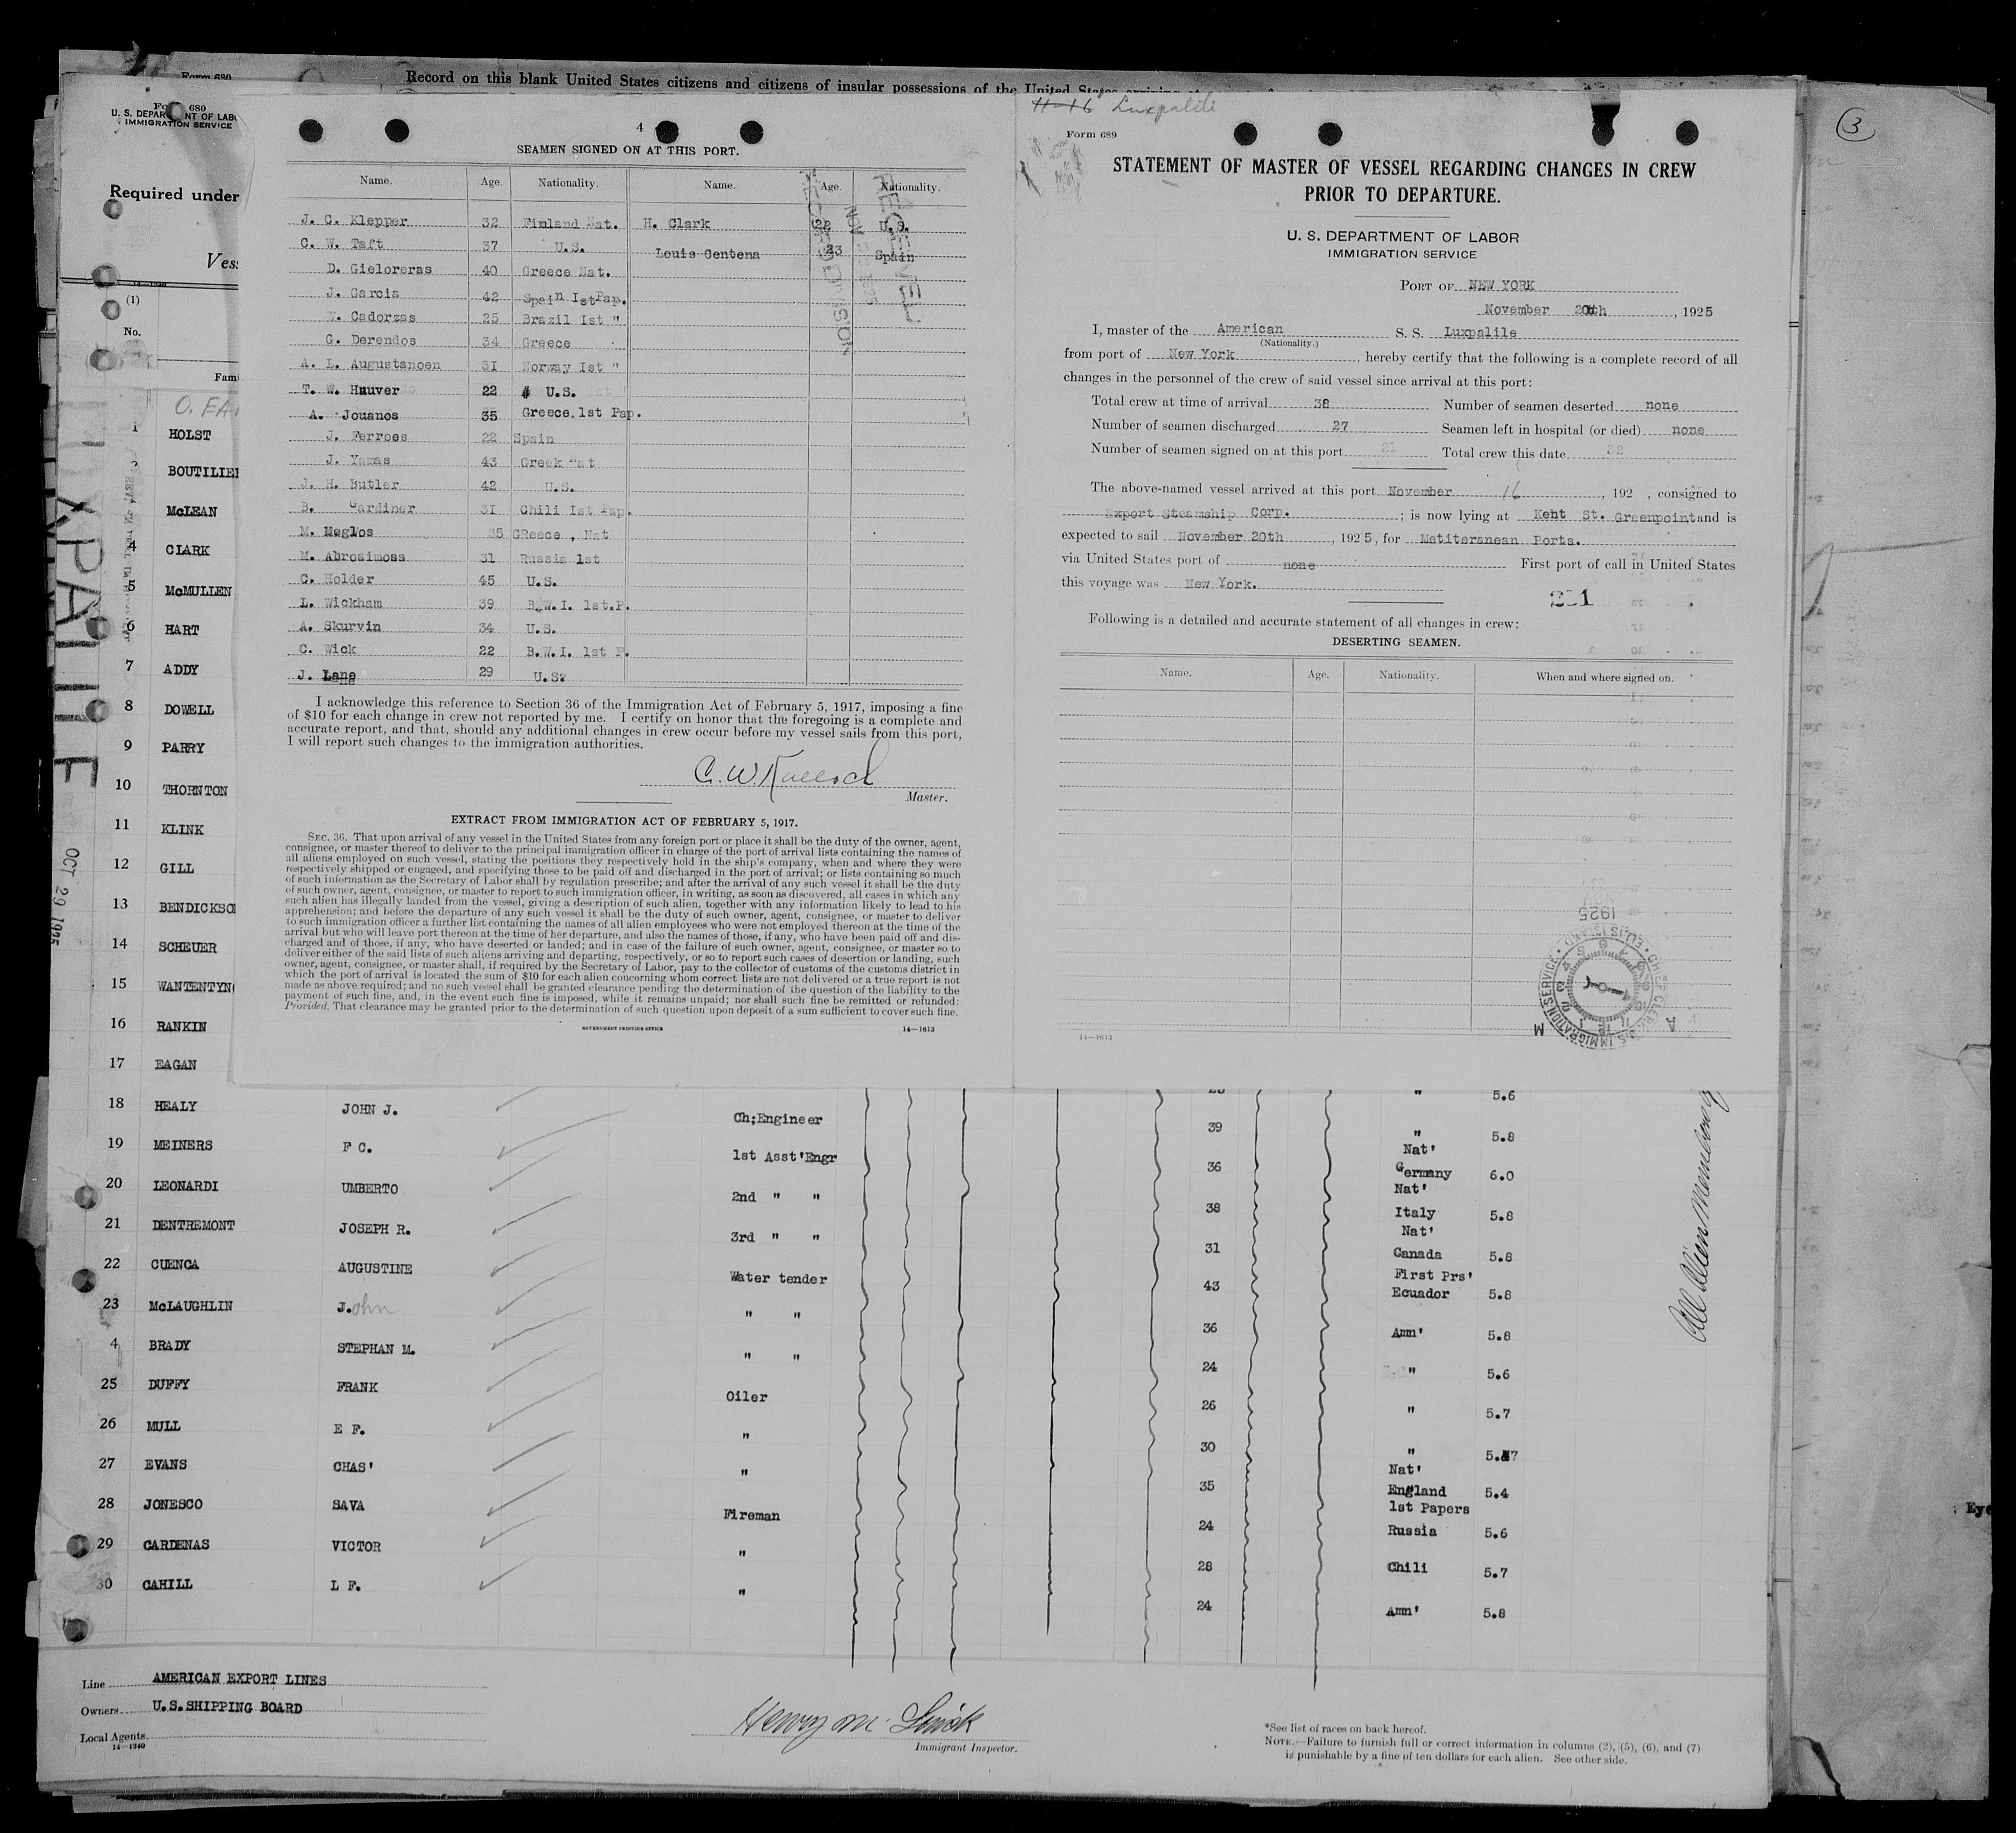 Form 680
Record on this blank United States citizens and citizens of insular possessions of the United States arriving
680
U. S. DEPARTMENT OF LABO
IMMIGRATION SERVICE
Required under
(1)
No.
Fami
LUXPALILE
OCT 29 1925
4
SEAMEN SIGNED ON AT THIS PORT.
Name. Age. Nationality. Name. Age. Nationality.
J. C. Klepper 32 Finland Nat. H. Clark 28 U.S.
C. W. Taft 37 U.S. Louis Centena 23 Spain
D. Gieloreras 40 Greece Nat.
J. Garcia 42 Spain Ist Pap.
W. Cadorzas 25 Brazil Ist "
G. Derendos 34 Greece
A. L. Augustanoen 31 Norway Ist "
T. W. Hauver 22 U.S.
A. Jouanos 35 Greece.1st Pap.
J. Ferroes 22 Spain
J. Yamas 43 Greek Nat
J. H. Butler 42 U.S.
B. Gardiner 31 Chili Ist Pap.
M. Meglos 35 GReece , Nat
M. Abrosimosa 31 Russia 1st
C. Holder 45 U.S.
L. Wickham 39 B.W.I. 1st.P.
A. Skurvin 34 U.S.
C. Wick 22 B.W.I. 1st P.
J. Lane 29 U.S.
I acknowledge this reference to Section 36 of the Immigration Act of February 5, 1917, imposing a fine
of $10 for each change in crew not reported by me. I certify on honor that the foregoing is a complete and
accurate report, and that, should any additional changes in crew occur before my vessel sails from this port,
I will report such changes to the immigration authorities.
Master.
EXTRACT FROM IMMIGRATION ACT OF FEBRUARY 5, 1917.
SEC. 36. That upon arrival of any vessel in the United States from any foreign port or place it shall be the duty of the owner, agent,
consignee, or master thereof to deliver to the principal immigration officer in charge of the port of arrival lists containing the names of
all aliens employed on such vessel, stating the positions they respectively hold in the ship's company, when and where they were
respectively shipped or engaged, and specifying those to be paid off and discharged in the port of arrival; or lists containing so much
of such information as the Secretary of Labor shall by regulation prescribe; and after the arrival of any such vessel it shall be the duty
of such owner, agent, consignee, or master to report to such immigration officer, in writing, as soon as discovered, all cases in which any
such alien has illegally landed from the vessel, giving a description of such alien, together with any information likely to lead to his
apprehension; and before the departure of any such vessel it shall be the duty of such owner, agent, consignee, or master to deliver
to such immigration officer a further list containing the names of all alien employees who were not employed thereon at the time of the
arrival but who will leave port thereon at the time of her departure, and also the names of those, if any, who have been paid off and dis-
charged and of those, if any, who have deserted or landed; and in case of the failure of such owner, agent, consignee, or master so to
deliver either of the said lists of such aliens arriving and departing, respectively, or so to report such cases of desertion or landing, such
owner, agent, consignee, or master shall, if required by the Secretary of Labor, pay to the collector of customs of the customs district in
which the port of arrival is located the sum of $10 for each alien concerning whom correct lists are not delivered or a true report is not
made as above required; and no such vessel shall be granted clearance pending the determination of the question of the liability to the
payment of such fine, and, in the event such fine is imposed, while it remains unpaid; nor shall such fine be remitted or refunded:
Provided, That clearance may be granted prior to the determination of such question upon deposit of a sum sufficient to cover such fine.
GOVERNMENT PRINTING OFFICE 14—1613
11-16 Luxpalile
Form 689
STATEMENT OF MASTER OF VESSEL REGARDING CHANGES IN CREW
PRIOR TO DEPARTURE.
U. S. DEPARTMENT OF LABOR
IMMIGRATION SERVICE
PORT OF NEW YORK
November 20th, 1925
I, master of the American S. S. Luxpalile
(Nationality.)
from port of New York, hereby certify that the following is a complete record of all
changes in the personnel of the crew of said vessel since arrival at this port:
Total crew at time of arrival 38 Number of seamen deserted none
Number of seamen discharged 27 Seamen left in hospital (or died) none
Number of seamen signed on at this port 21 Total crew this date 32
The above-named vessel arrived at this port November 16, 192 , consigned to
Export Steamship Corp. ; is now lying at Kent St. Greenpoint and is
expected to sail November 20th, 1925, for Metiteranean Ports.
via United States port of none First port of call in United States
this voyage was New York.
221
Following is a detailed and accurate statement of all changes in crew:
DESERTING SEAMEN.
Name. Age. Nationality. When and where signed on.
1925
14—1613
3
1 HOLST
2 BOUTILIER
McLEAN
4 CLARK
5 McMULLEN
6 HART
7 ADDY
8 DOWELL
9 PARRY
10 THORNTON
11 KLINK
12 GILL
13 BENDICKSO
14 SCHEUER
15 WANTENTYN
16 RANKIN
17 EAGAN
18 HEALY JOHN J. Ch;Engineer 39 " 5.8
19 MEINERS F C. 1st Asst'Engr 36 Nat' Germany 6.0
20 LEONARDI UMBERTO 2nd " " 38 Nat' Italy 5.8
21 DENTREMONT JOSEPH R. 3rd " " 31 Nat' Canada 5.8
22 CUENCA AUGUSTINE Water tender 43 First Prs' Ecuador 5.8
23 McLAUGHLIN John " " 36 Amn' 5.8
4 BRADY STEPHAN M. " " 24 " 5.6
25 DUFFY FRANK Oiler 26 " 5.7
26 MULL E F. " 30 " 5.7
27 EVANS CHAS' " 35 Nat' England 5.4
28 JONESCO SAVA Fireman 24 1st Papers Russia 5.6
29 CARDENAS VICTOR " 28 Chili 5.7
30 CAHILL L F. " 24 Amn' 5.8
Eye
Line AMERICAN EXPORT LINES
Owners U.S.SHIPPING BOARD
Local Agents
14—1240
Immigrant Inspector.
*See list of races on back hereof.
NOTE.—Failure to furnish full or correct information in columns (2), (5), (6), and (7)
is punishable by a fine of ten dollars for each alien. See other side.